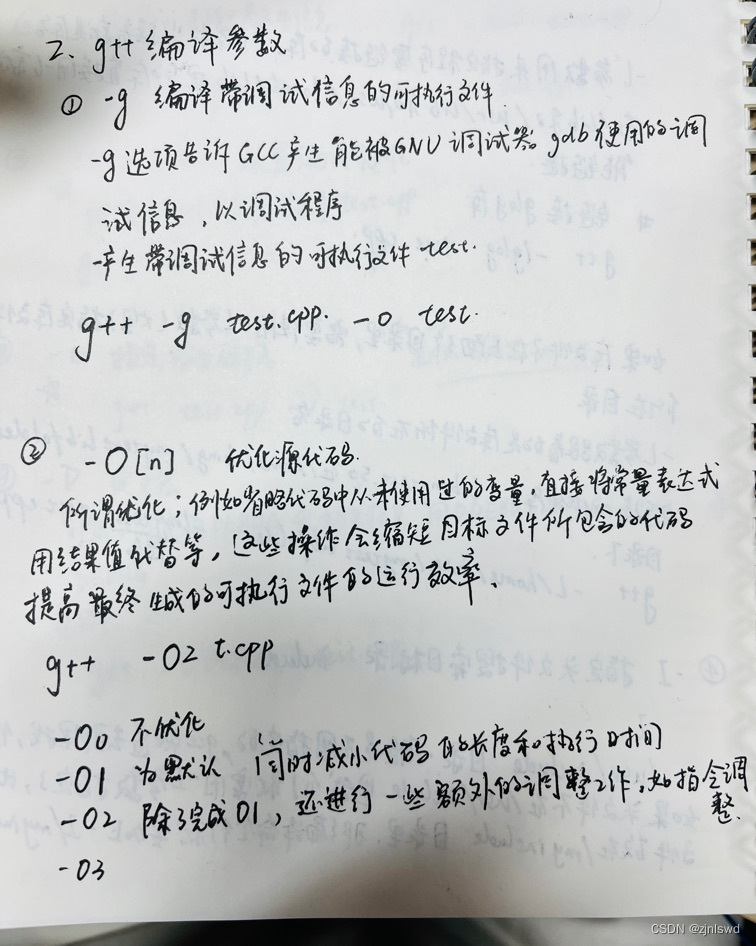 2. g++ 编译参数
① -g 编译带调试信息的可执行文件.
-g 选项告诉 GCC 产生能被 GNU 调试器 gdb 使用的调
试信息，以调试程序
-产生带调试信息的可执行文件 test.
g++ -g test.cpp. -o test.
② -O[n] 优化源代码.
所谓优化；例如省略代码中从未使用过的变量，直接将常量表达式
用结果值代替等，这些操作会缩短目标文件所包含的代码
提高最终生成的可执行文件的运行效率.
g++ -O2 t.cpp
-O0 不优化
-O1 为默认 同时减小代码的长度和执行时间
-O2 除了完成O1，还进行一些额外的调整工作，如指令调
整.
-O3
CSDN @zjnlswd